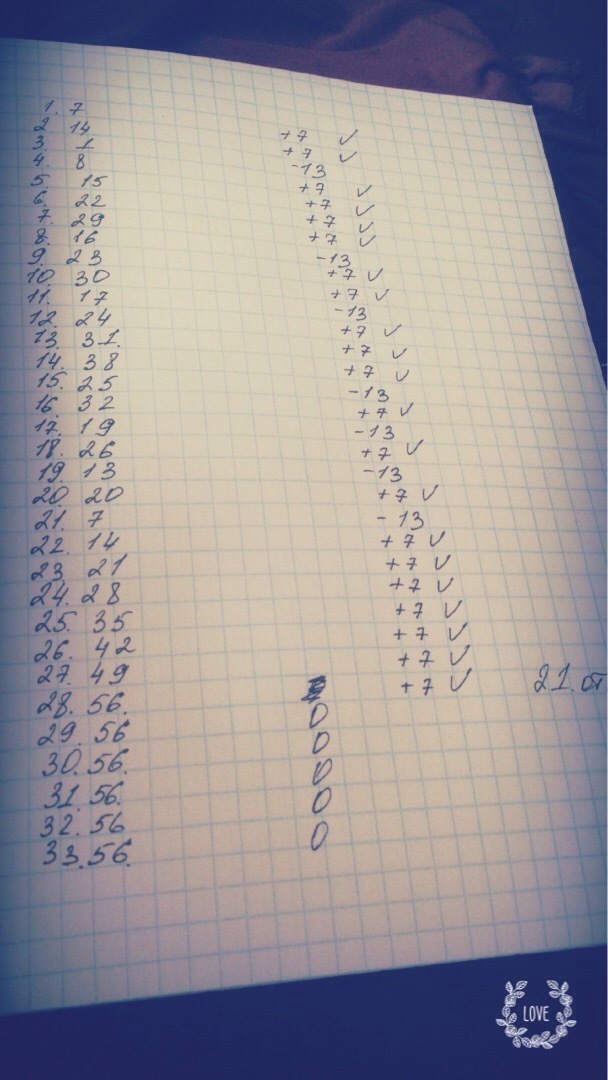 1. 7
2. 14
3. 1
4. 8
5. 15
6. 22
7. 29
8. 16
9. 23
10. 30
11. 17
12. 24
13. 31.
14. 38
15. 25
16. 32
17. 19
18. 26
19. 13
20. 20
21. 7
22. 14
23. 21
24. 28
25. 35
26. 42
27. 49
28. 56.
29. 56
30. 56.
31. 56.
32. 56
33. 56.
+7 ✓
+7 ✓
-13
+7 ✓
+7 ✓
+7 ✓
+7 ✓
-13
+7 ✓
+7 ✓
-13
+7 ✓
+7 ✓
+7 ✓
-13
+7 ✓
-13
+7 ✓
-13
+7 ✓
-13
+7 ✓
+7 ✓
+7 ✓
+7 ✓
+7 ✓
+7 ✓
+7 ✓
0
0
0
0
0
21. от
LOVE